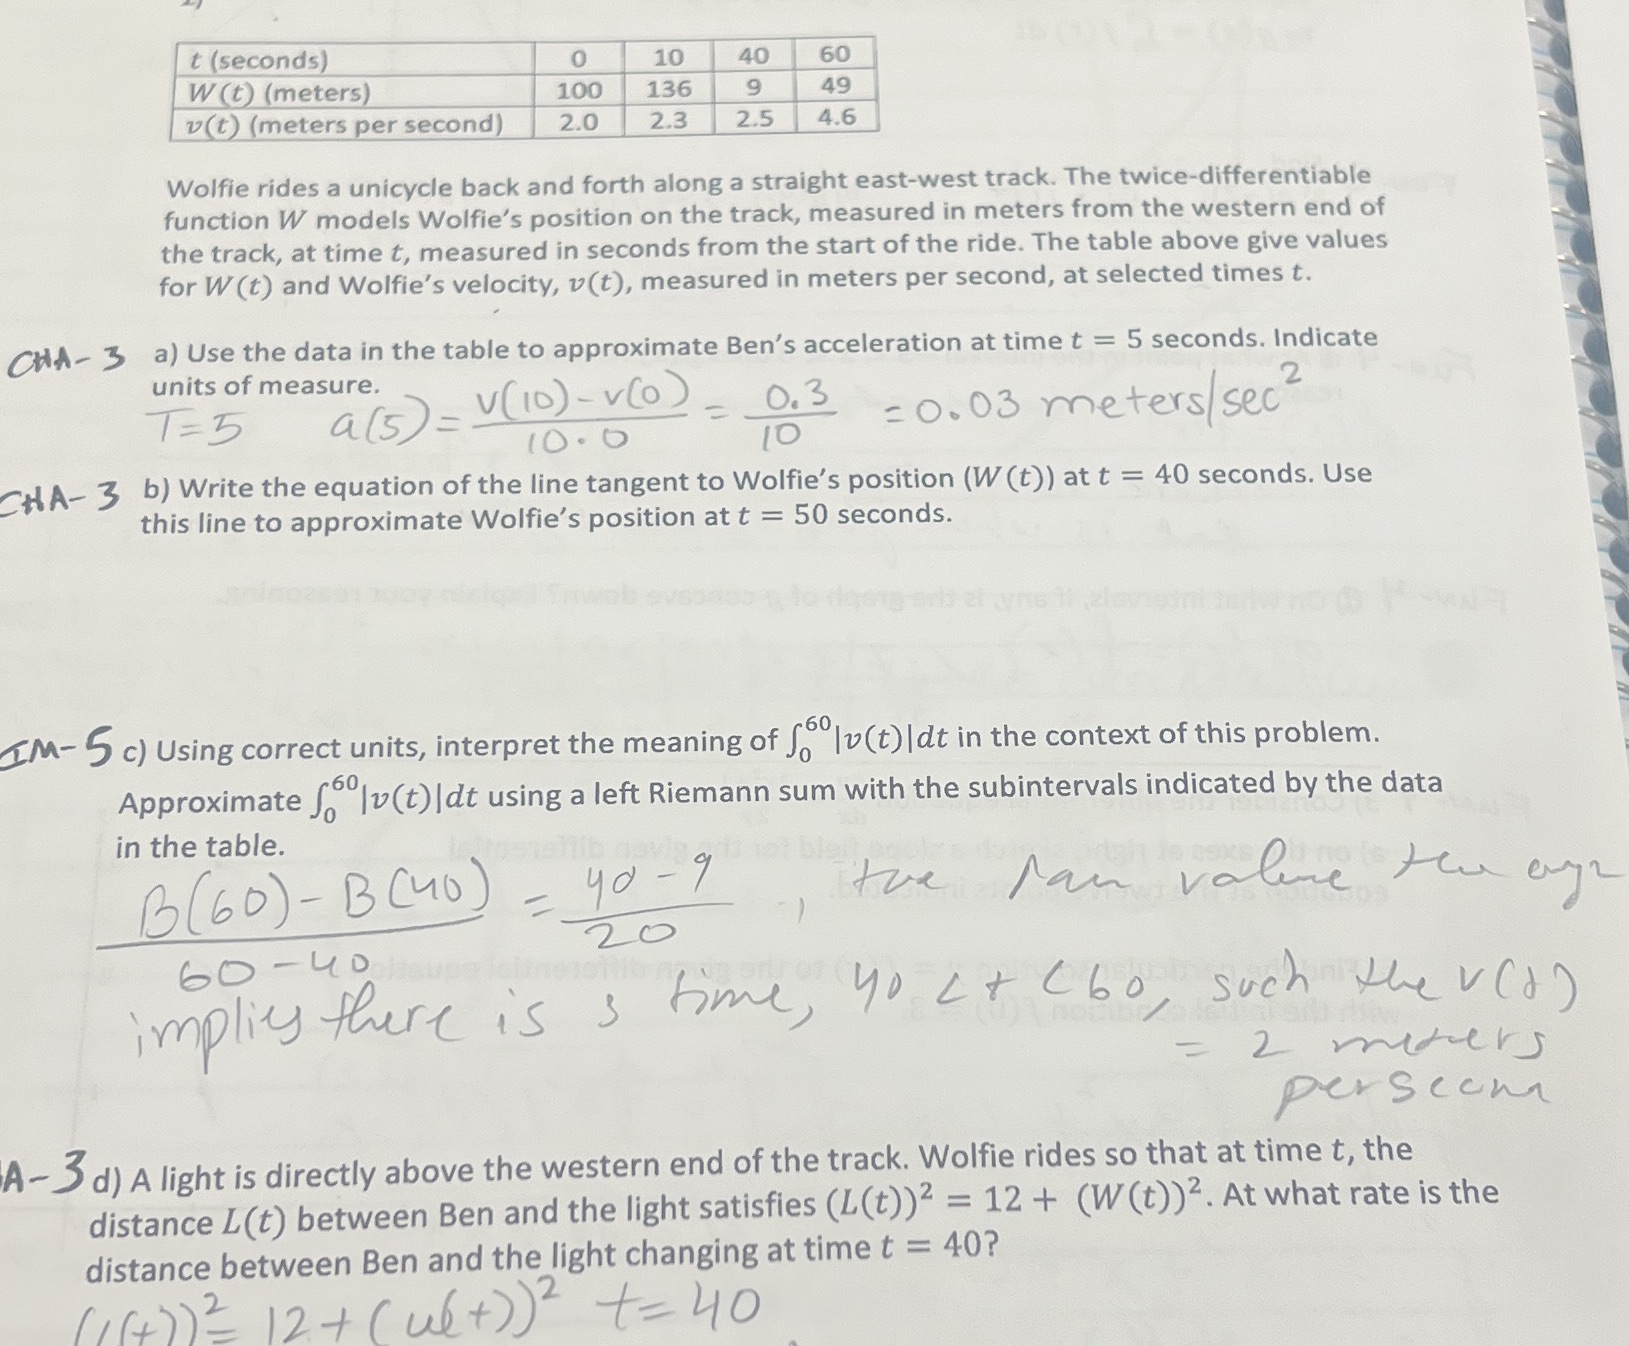 t (seconds) 0 10 40 60
W(t) (meters) 100 136 9 49
v(t) (meters per second) 2.0 2.3 2.5 4.6
Wolfie rides a unicycle back and forth along a straight east-west track. The twice-differentiable
function W models Wolfie's position on the track, measured in meters from the western end of
the track, at time t, measured in seconds from the start of the ride. The table above give values
for W(t) and Wolfie's velocity, v(t), measured in meters per second, at selected times t.
CHA-3 a) Use the data in the table to approximate Ben's acceleration at time t = 5 seconds. Indicate
units of measure.
T=5 a(5) = (v(10) - v(0))/(10.0) = 0.3/10 = 0.03 meters/sec²
CHA-3 b) Write the equation of the line tangent to Wolfie's position (W(t)) at t = 40 seconds. Use
this line to approximate Wolfie's position at t = 50 seconds.
IM-5 c) Using correct units, interpret the meaning of ∫₀⁶⁰|v(t)|dt in the context of this problem.
Approximate ∫₀⁶⁰|v(t)|dt using a left Riemann sum with the subintervals indicated by the data
in the table.
(B(60) - B(40))/(60-40) = (40-9)/20, value
implies there is time, 40 < t < 60, such the v(t)
= 2 meters
per
A-3 d) A light is directly above the western end of the track. Wolfie rides so that at time t, the
distance L(t) between Ben and the light satisfies (L(t))² = 12 + (W(t))². At what rate is the
distance between Ben and the light changing at time t = 40?
(L(t))² = 12 + (w(t))² t = 40